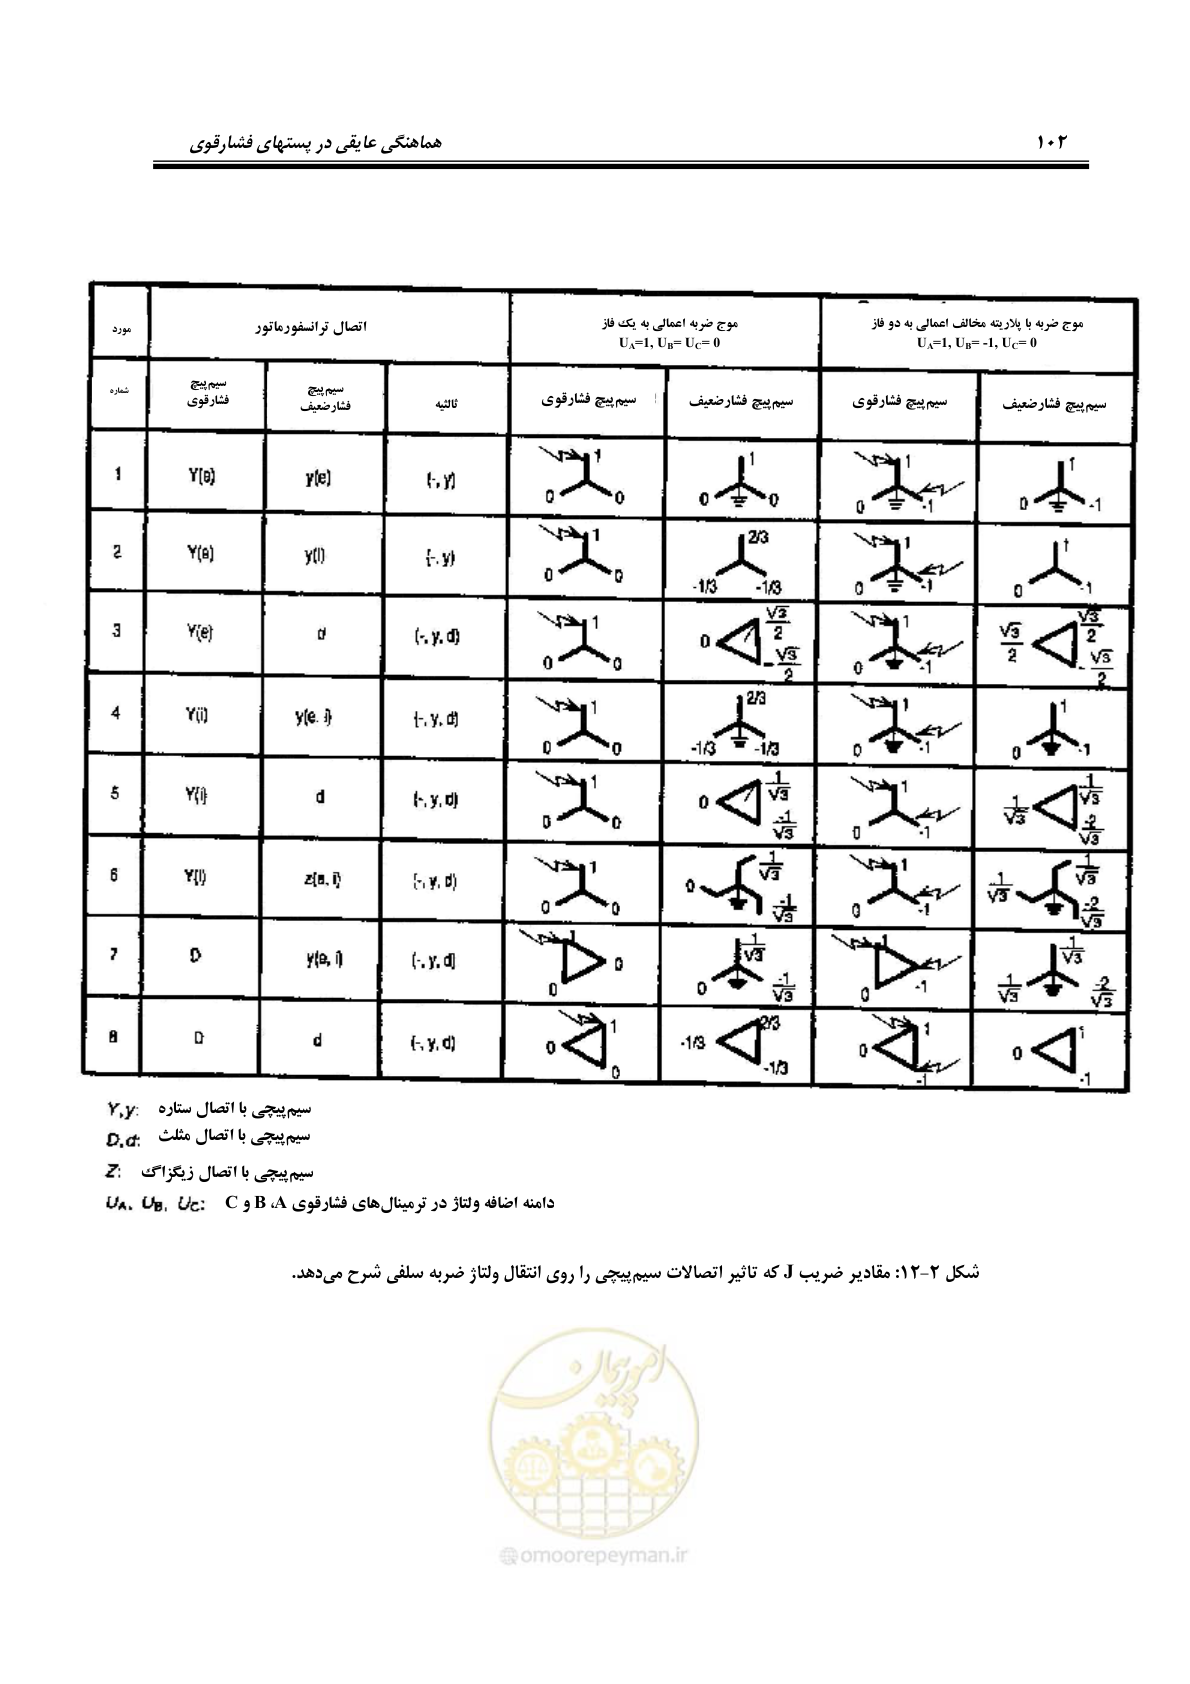 ۱۰۲ هماهنگی عایقی در پستهای فشارقوی
مورد اتصال ترانسفورماتور موج ضربه اعمالی به یک فاز موج ضربه با پلاریته مخالف اعمالی به دو فاز
UA=1, UB= UC= 0 UA=1, UB= -1, UC= 0
شماره سیم‌پیچ فشارقوی سیم‌پیچ فشارضعیف ثالثیه سیم‌پیچ فشارقوی سیم‌پیچ فشارضعیف سیم‌پیچ فشارقوی سیم‌پیچ فشارضعیف
1 Y(e) y(e) (-, y) 1 0 0 1 0 0 1 0 -1 1 0 -1
2 Y(e) y(i) (-, y) 1 0 0 2/3 -1/3 -1/3 1 0 -1 1 0 -1
3 Y(e) d (-, y, d) 1 0 0 0 √3/2 -√3/2 1 0 -1 √3/2 √3/2 -√3/2
4 Y(i) y(e, i) (-, y, d) 1 0 0 2/3 -1/3 -1/3 1 0 -1 1 0 -1
5 Y(i) d (-, y, d) 1 0 0 0 1/√3 -1/√3 1 0 -1 1/√3 1/√3 -2/√3
6 Y(i) z(e, i) (-, y, d) 1 0 0 0 1/√3 -1/√3 1 0 -1 1/√3 1/√3 -2/√3
7 D y(e, i) (-, y, d) 1 0 0 1/√3 0 -1/√3 1 0 -1 1/√3 1/√3 -2/√3
8 D d (-, y, d) 1 0 0 2/3 -1/3 -1/3 1 0 -1 1 0 -1
Y,y: سیم‌پیچی با اتصال ستاره
D,d: سیم‌پیچی با اتصال مثلث
Z: سیم‌پیچی با اتصال زیگزاگ
UA, UB, UC: دامنه اضافه ولتاژ در ترمینال‌های فشارقوی B ،A و C
شکل ۲-۱۲: مقادیر ضریب J که تاثیر اتصالات سیم‌پیچی را روی انتقال ولتاژ ضربه سلفی شرح می‌دهد.
امور پیمان
@omoorepeyman.ir